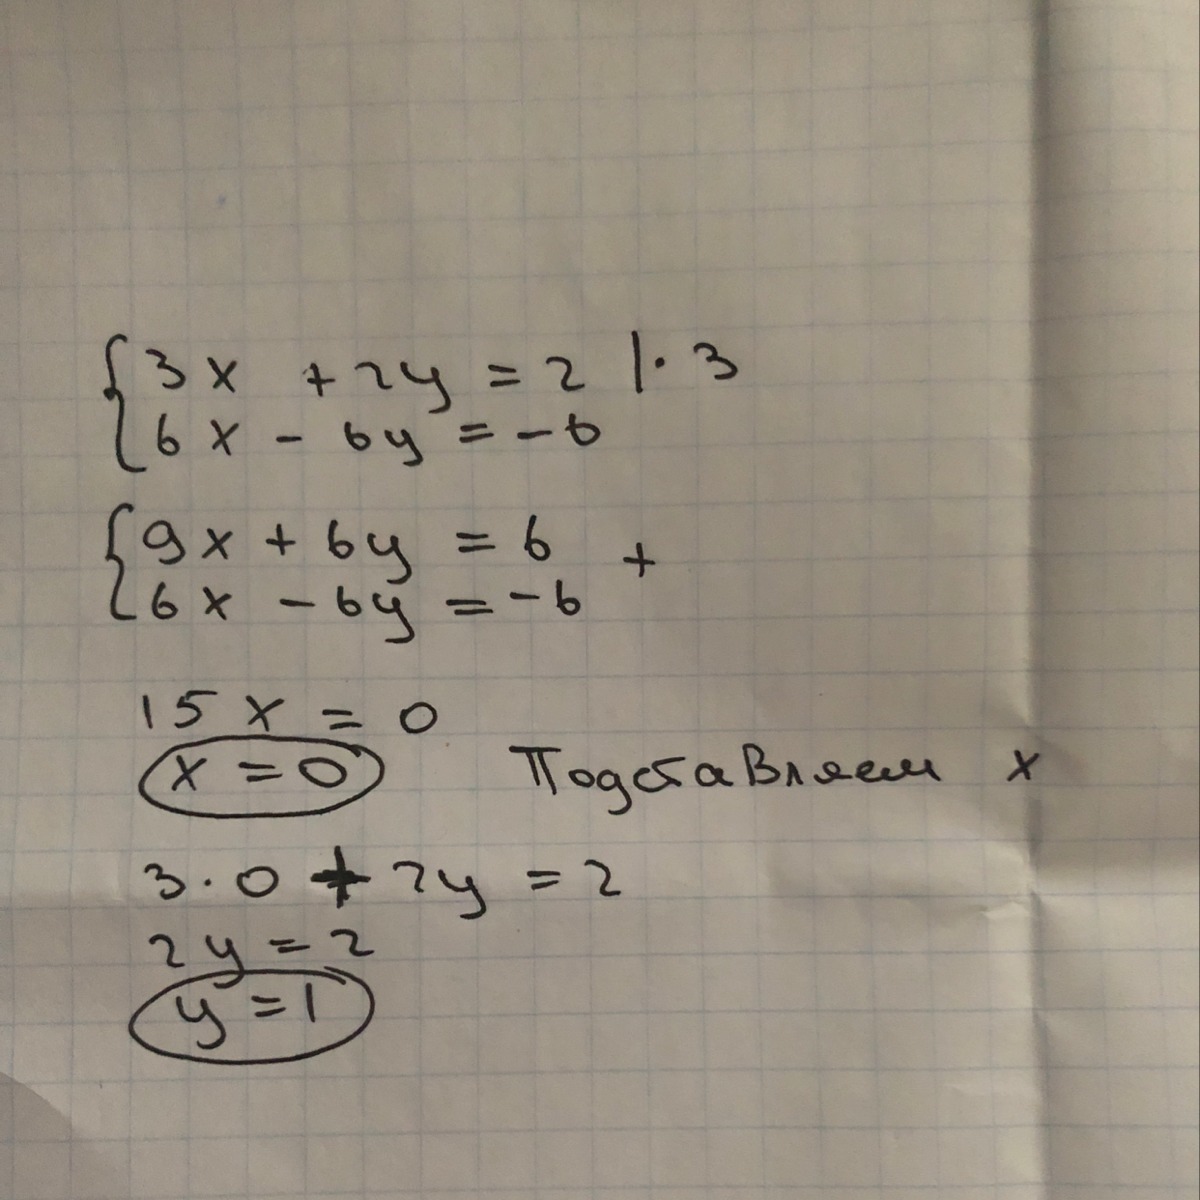 {3x + 2y = 2 |· 3
6x - 6y = -6
{9x + 6y = 6 +
6x - 6y = -6
15x = 0
x = 0 Подставляем x
3·0 + 2y = 2
2y = 2
y = 1